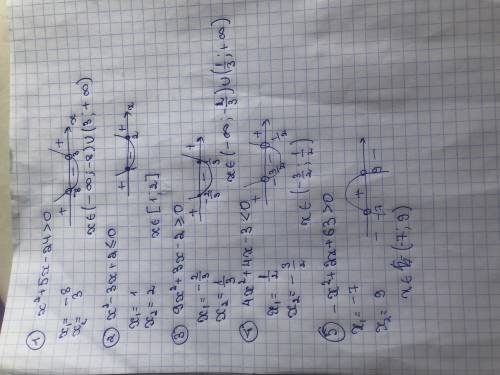 1) x²+5x-24>0
x₁= -8
x₂= 3
+ - +
-8 3 x
x∈(-∞;-8)∪(3;+∞)
2) x²-3x+2≤0
x₁=1
x₂=2
+ - +
1 2 x
x∈[1;2]
3) 9x²+3x-2≥0
x₁=-2/3
x₂=1/3
+ - +
-2/3 1/3
x∈(-∞;-2/3)∪(1/3;+∞)
4) 4x²+4x-3<0
x₁= 1/2
x₂=-3/2
+ - +
-3/2 1/2
x∈(-3/2;1/2)
5) -x²+2x+63>0
x₁=-7
x₂= 9
- + -
-7 9
x∈(-7;9)